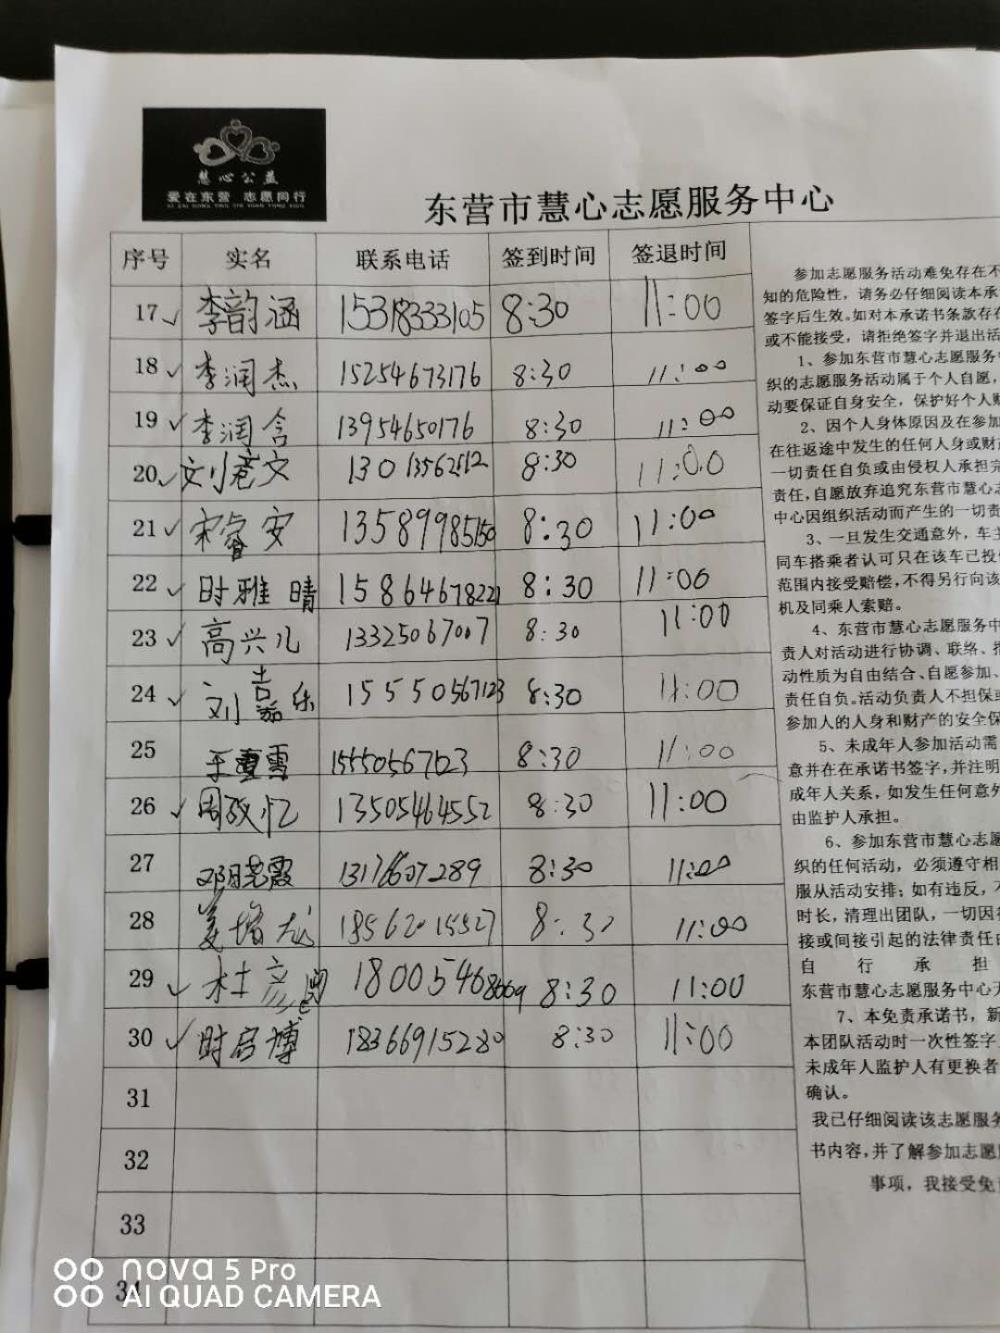 慧心公益
爱在东营 志愿同行
东营市慧心志愿服务中心
序号 实名 联系电话 签到时间 签退时间
17 李韵涵 15318333105 8:30 11:00
18 李润杰 15254673176 8:30 11:00
19 李润含 13954650176 8:30 11:00
20 8:30 11:00
21 宋睿安 13589985150 8:30 11:00
22 时雅晴 8:30 11:00
23 高兴儿 13325067007 8:30 11:00
24 刘嘉乐 15550567123 8:30 11:00
25 15550567123 8:30 11:00
26 13505464552 8:30 11:00
27 13176607289 8:30 11:00
28 18562015527 8:30 11:00
29 18005468669 8:30 11:00
30 时启博 18366915280 8:30 11:00
31
32
33
34
参加志愿服务活动难免存在不
知的危险性，请务必仔细阅读本承
签字后生效。如对本承诺书条款存在
或不能接受，请拒绝签字并退出活
1、参加东营市慧心志愿服务中
织的志愿服务活动属于个人自愿，
动要保证自身安全，保护好个人财
2、因个人身体原因及在参加
在往返途中发生的任何人身或财产
一切责任自负或由侵权人承担完
责任，自愿放弃追究东营市慧心志
中心因组织活动而产生的一切责
3、一旦发生交通意外，车主
同车搭乘者认可只在该车已投保
范围内接受赔偿，不得另行向该
机及同乘人索赔。
4、东营市慧心志愿服务中
责人对活动进行协调、联络、指
动性质为自由结合、自愿参加、
责任自负。活动负责人不担保或
参加人的人身和财产的安全保
5、未成年人参加活动需
意并在在承诺书签字，并注明
成年人关系，如发生任何意外
由监护人承担。
6、参加东营市慧心志愿
织的任何活动，必须遵守相
服从活动安排；如有违反，不
时长，清理出团队，一切因衤
接或间接引起的法律责任由
自行承担
东营市慧心志愿服务中心无
7、本免责承诺书，新
本团队活动时一次性签字，
未成年人监护人有更换者
确认。
我已仔细阅读该志愿服务
书内容，并了解参加志愿服
事项，我接受免责
nova 5 Pro
AI QUAD CAMERA